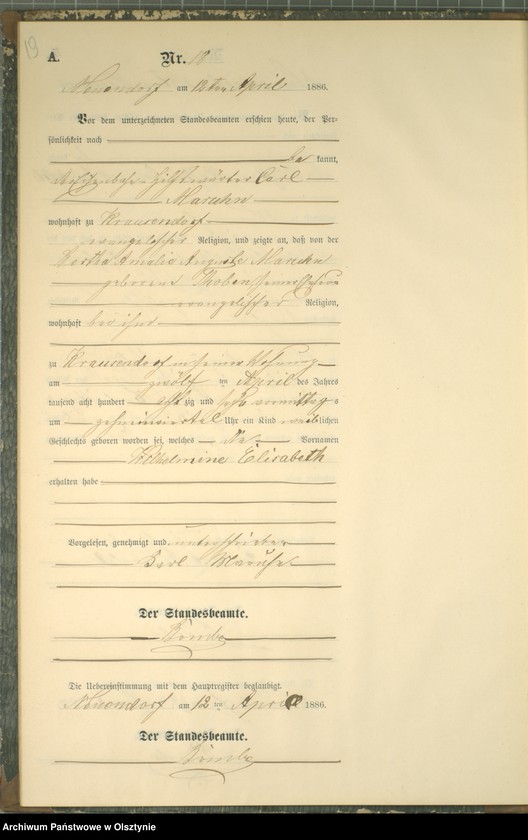 19
A. Nr. 18
Neuendorf am 12ten April 1886.
Vor dem unterzeichneten Standesbeamten erschien heute, der Per-
sönlichkeit nach
be kannt,
Carl
Maruhn
wohnhaft zu Krausendorf
evangelischer Religion, und zeigte an, daß von der
Bertha Amalie Auguste Maruhn
geborene Thoben seiner Ehefrau
evangelischer Religion,
wohnhaft bei ihm
zu Krausendorf in seiner Wohnung
am zwölf ten April des Jahres
tausend acht hundert acht zig und sechs vormittag s
um Uhr ein Kind weib lichen
Geschlechts geboren worden sei, welches die Vornamen
Wilhelmine Elisabeth
erhalten habe
Vorgelesen, genehmigt und unterschrieben
Carl Maruhn
Der Standesbeamte.
Die Uebereinstimmung mit dem Hauptregister beglaubigt.
Neuendorf am 12 ten April 1886.
Der Standesbeamte.
Archiwum Państwowe w Olsztynie